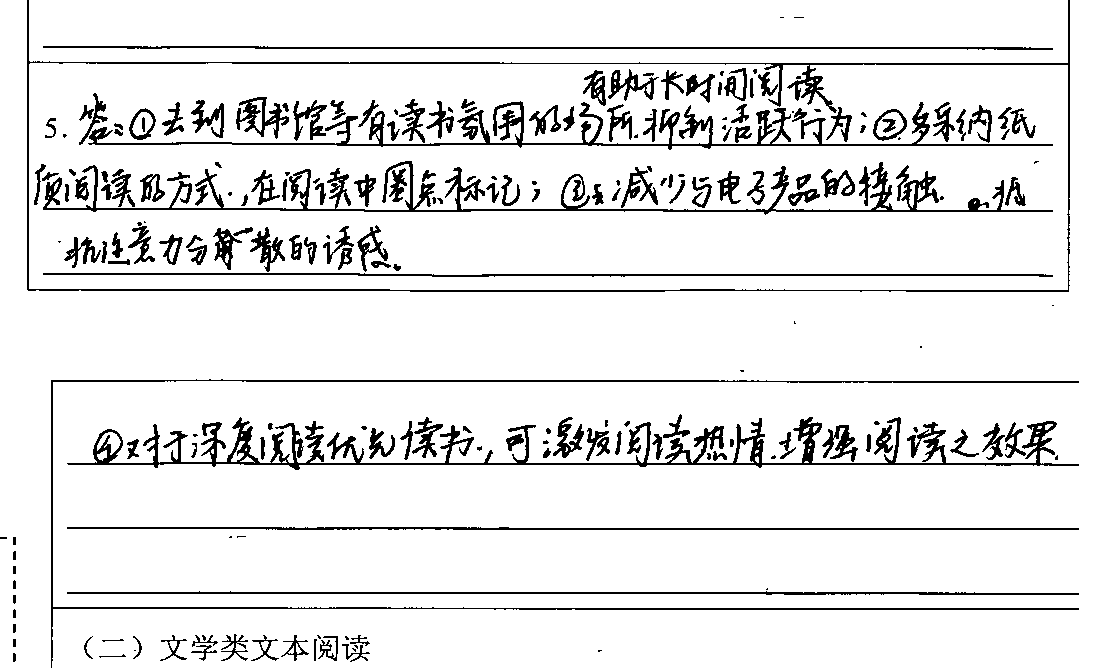 有助于长时间阅读
5. 答:①去到图书馆等有读书氛围的场所.抑制活跃行为;②多采纳纸
质阅读的方式.,在阅读中圈点标记;③减少与电子产品的接触.抵
抗注意力分散的诱惑。
④对于深度阅读优先读书.,可激发阅读热情.增强阅读之效果.
(二)文学类文本阅读